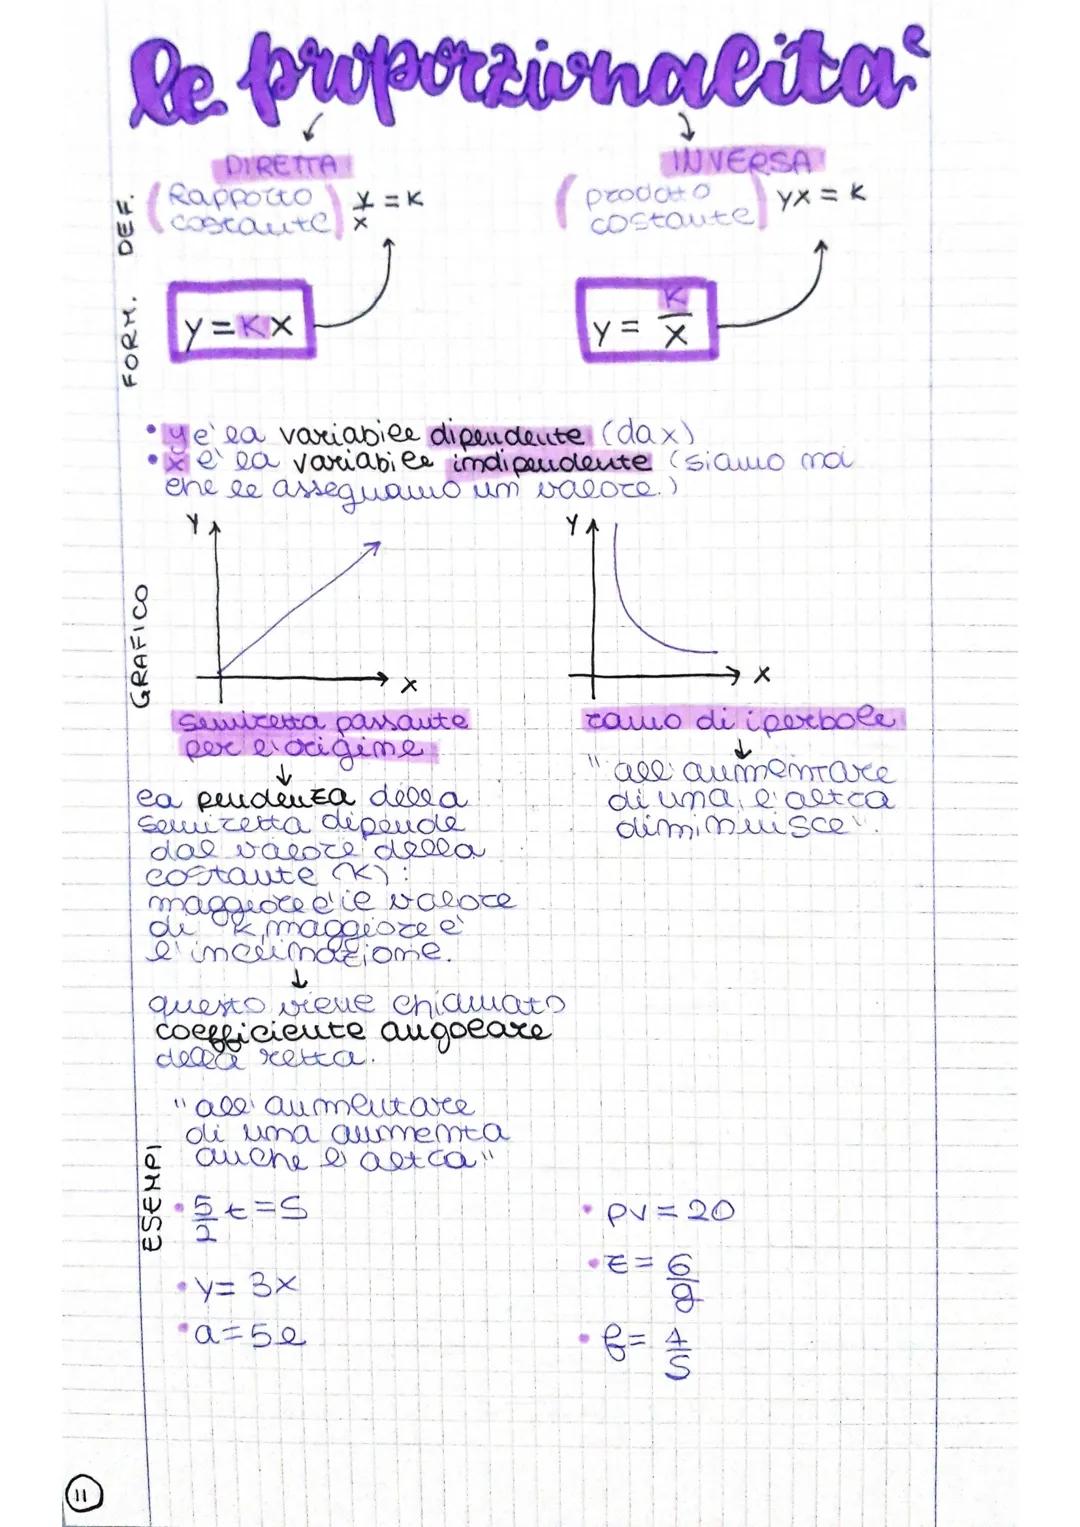 le proporzionalità
DIRETTA
INVERSA
DEF.
(Rapporto costante) y/x = K
(prodotto costante) yx = K
FORM.
y = K x
y = K/x
• y è la variabile dipendente (da x)
• x è la variabile indipendente (siamo noi
che le assegnamo un valore.)
GRAFICO
Y
X
Y
X
semiretta passante
per l'origine
↓
la pendenza della
semiretta dipende
dal valore della
costante (K):
maggiore è il valore
di K, maggiore è
l'inclinazione.
↓
questo viene chiamato
coefficiente angolare
della retta.
"all'aumentare
di una aumenta
anche l'altra"
ramo di iperbole
↓
"all'aumentare
di una, l'altra
diminuisce".
ESEMPI
• 5/2 t = S
• y = 3x
• a = 5l
• pv = 20
• t = 6/g
• f = 1/S
11